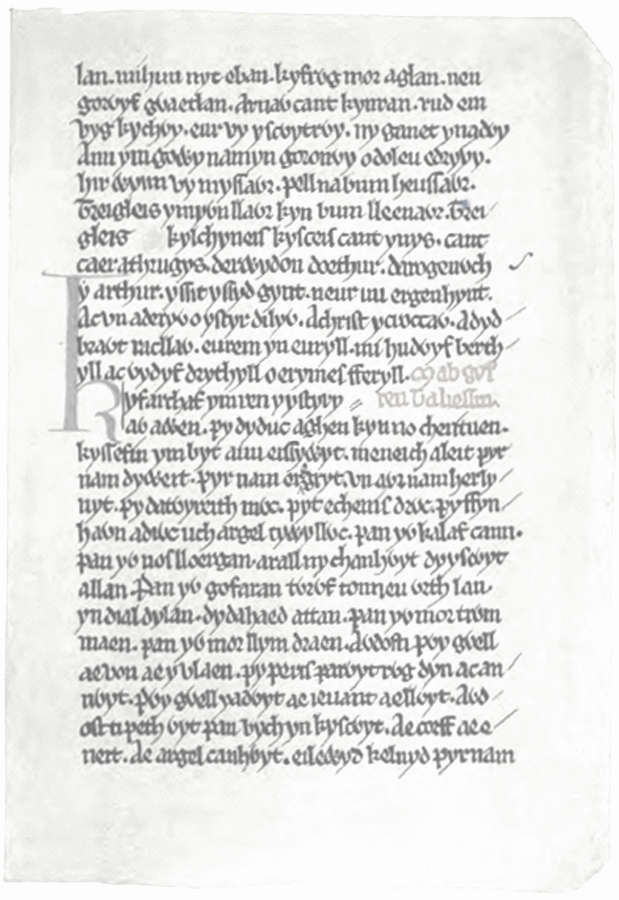 lan. mi hun nyt eban. kyfrwg mor aglan. neu
gorwyf gwaetlan. Arnaw cant kynran. rud em
vyg kychwy. eur vy yscwytrwy. ny ganet ynadwy
Auu ym gowy namyn goronwy o doleu edrywy.
hir wynn vy myssawr. pell na bum heussawr.
Treigleis ymywn llawr kyn bum lleenawr. Trei
gleis kylchyneis kysceis cant ynys. cant
caer athrugys. derwydon doethur. darogenwch
y arthur. yssit yssyd gynt. neur uu ergenhynt.
Ac vn aderyw o ystyr dilyw. Achrist ycroccaw. Adyd
brawt racllaw. eurem yn euryll. mi hudwyf berth
yll ac wydyf drythyll o erymes fferyll. ab gyf
Kyfarchaf ym ren y ystyry reu Taliessin.
aw awen. py dyduc aghen kyn no cherituen.
kyssefin ym byt auu eissywyt. meneich aleit pyr
nam dyweit. pyr nam eisgyt. vn awr nam herly
nyt. py datwyreith mwc. pyt echenis drwc. py ffyn
hawn adiwc uch argel tywyllwc. pan yw kalaf cann.
pan yw nos lloergan. arall ny chanhwyt dy yscwyt
allan. Pan yw gofaran twrwf tonneu wrth lan.
yn dial dylan. dydahaed attan. pan yw mor trwm
maen. pan yw mor llym draen. Awdosti pwy gwell
ae von ae y vlaen. py peris parwyt rwg dyn ac an
nwyt. pwy gwell yadwyt ae ieuanc ae llwyt. Awd
osti peth wyt pan vych yn kyscwyt. Ae corff ae e
neit. Ae argel canhwyt. eilewyd keluyd pyr nam